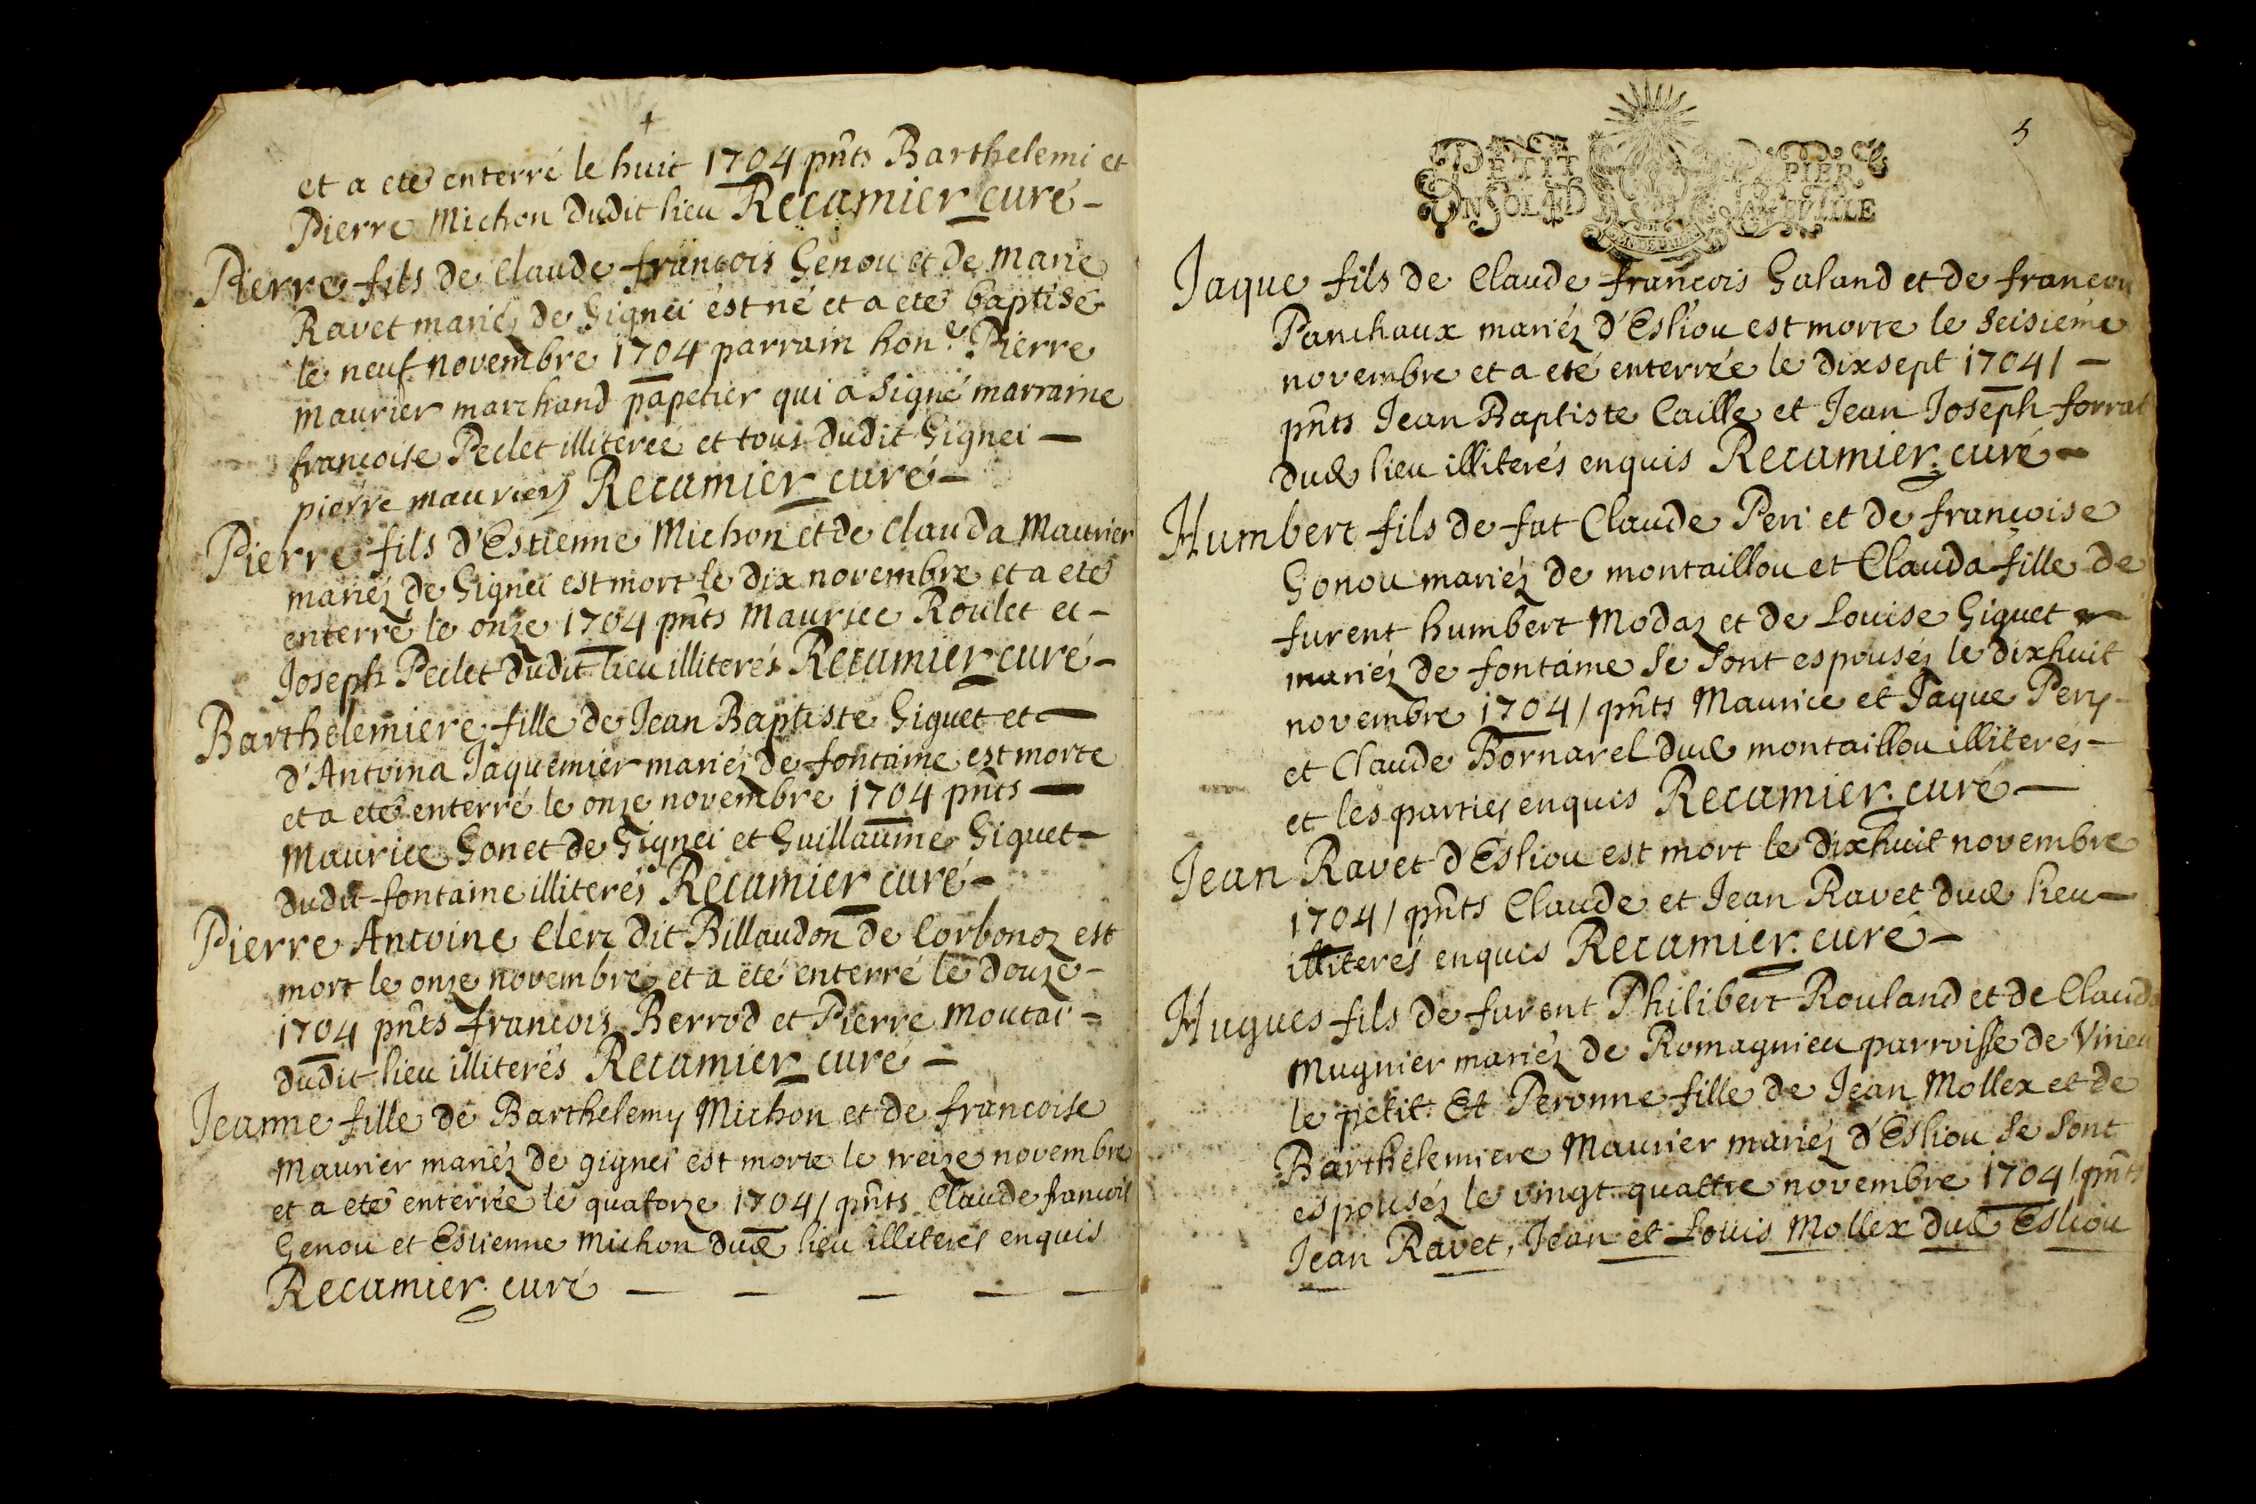 et a eté enterré le huit 1704 pñts Barthelemi et
Pierre Michon dudit lieu Recamier curé
Pierre fils de Claude françois Genou et de Marie
Ravet mariéz de Gignei est né et a eté baptisé
le neuf novembre 1704 parrain hon.e Pierre
Maurier marchand papetier qui a signé marraine
françoise Peclet illiterée et tous dudit Gignei
pierre maurier Recamier curé
Pierre fils d'Estienne Michon et de Clauda Maurier
mariéz de Gignei est mort le dix novembre et a eté
enterré le onze 1704 pñts Maurice Roulet et
Joseph Peclet dudit lieu illiterés Recamier curé
Barthelemiere fille de Jean Baptiste Giguet et
d'Antoina Jaquemier mariéz de fontaine est morte
et a eté enterré le onze novembre 1704 pñts
Maurice Gonet de Gignei et Guillaume Giguet
dudit fontaine illiterés Recamier curé
Pierre Antoine Clerc dit Billaudon de Corbonoz est
mort le onze novembre et a eté enterré le douze
1704 pñts françois Berrod et Pierre Moutai
dudit lieu illiterés Recamier curé
Jeanne fille de Barthelemy Michon et de françoise
Maurier mariéz de gignei est morte le treize novembre
et a eté enterrée le quatorze 1704 / pñts Claude françois
Genou et Estienne Michon dud lieu illiterés enquis
Recamier. curé
5
PETIT PAPIER
UN SOL LA FEUILLE
Jaque fils de Claude françois Galand et de françou
Panchaux mariéz d'Esliou est morte le seisieme
novembre et a eté enterrée le dixsept 1704 /
pñts Jean Baptiste Caille et Jean Joseph forrat
dud lieu illiterés enquis Recamier. curé
Humbert fils de fut Claude Peri et de françoise
Gonou mariéz de montaillou et Clauda fille de
furent humbert Modaz et de Louise Giguet
mariéz de fontaine se sont espouséz le dixhuit
novembre 1704 / pñts Maurice et Jaque Pery
et Claude Bornarel dud montaillou illiterés
et les parties enquis Recamier. curé
Jean Ravet d'Esliou est mort le dixhuit novembre
1704 / pñts Claude et Jean Ravet dud lieu
illiterés enques Recamier. curé
Hugues fils de furent Philibert Rouland et de Clauda
Mugnier mariéz de Romagnieu parroisse de Virieu
le petit. Et Peronne fille de Jean Mollex et de
Barthelemiere Maurier mariéz d'Esliou se sont
espouséz le vingt quattre novembre 1704 / pñts
Jean Ravet, Jean et Louis Mollex dud Esliou